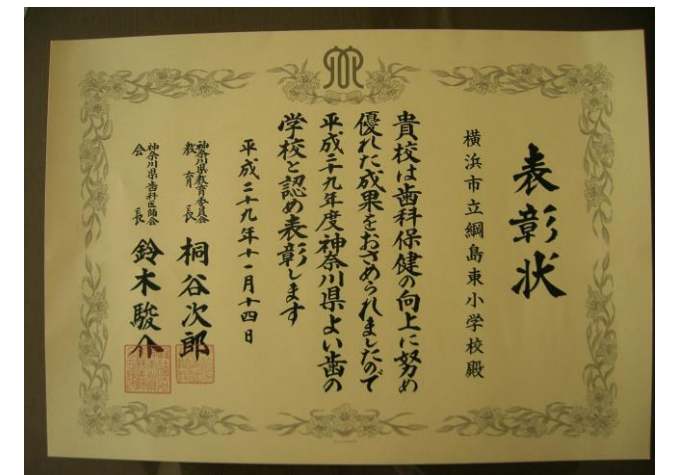 表彰状
横浜市立綱島東小学校殿
貴校は歯科保健の向上に努め
優れた成果をおさめられましたので
平成二十九年度神奈川県よい歯の
学校と認め表彰します
平成二十九年十一月十四日
神奈川県教育委員会
教育長 桐谷次郎
神奈川県歯科医師会
会長 鈴木駿介